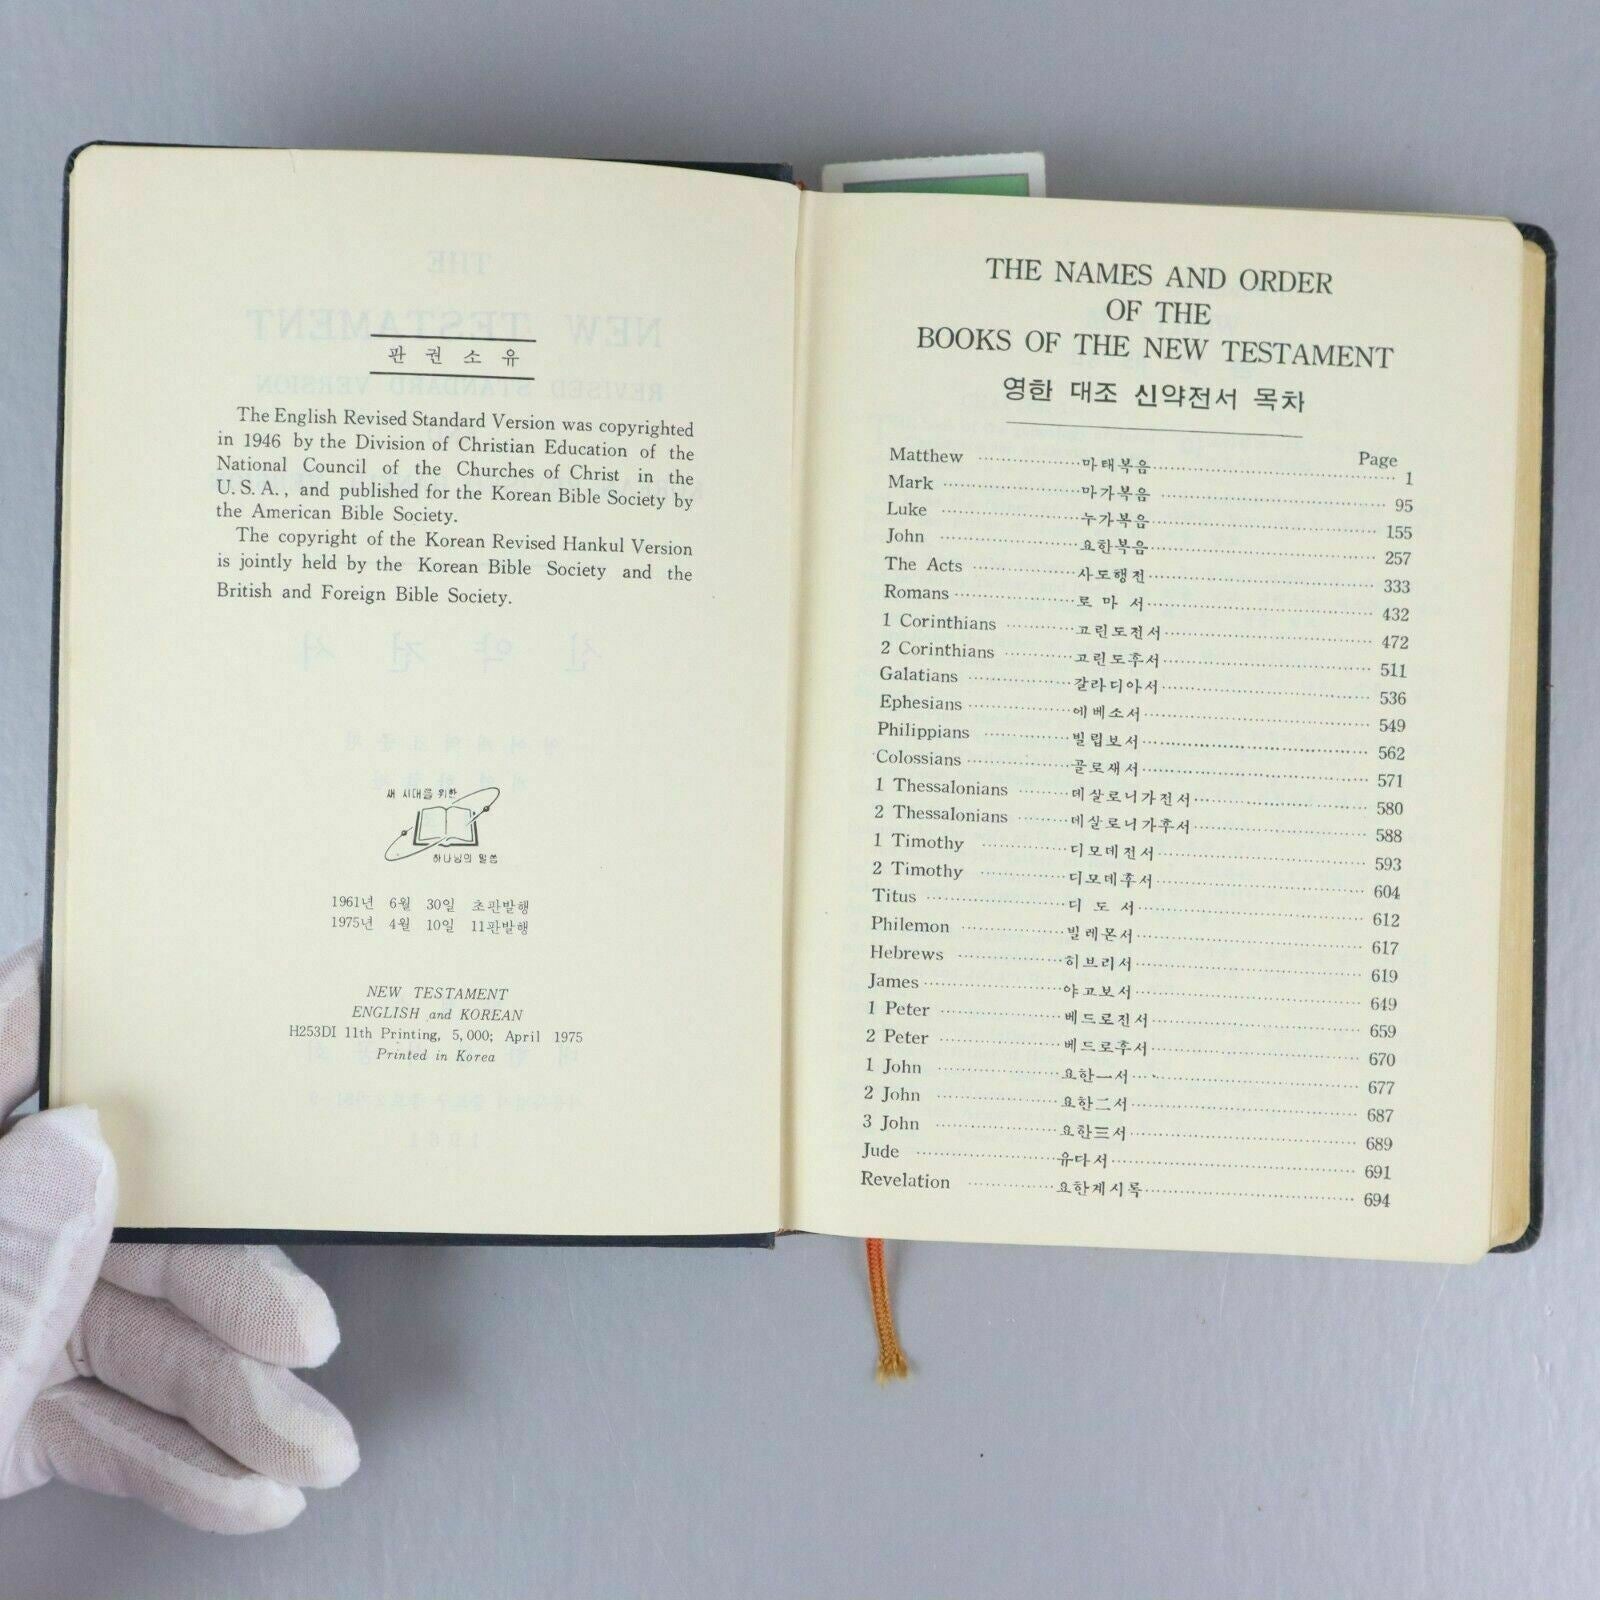 판 권 소 유
The English Revised Standard Version was copyrighted
in 1946 by the Division of Christian Education of the
National Council of the Churches of Christ in the
U. S. A., and published for the Korean Bible Society by
the American Bible Society.
The copyright of the Korean Revised Hankul Version
is jointly held by the Korean Bible Society and the
British and Foreign Bible Society.
새 시대를 위한
하나님의 말씀
1961년 6월 30일 초판발행
1975년 4월 10일 11판발행
NEW TESTAMENT
ENGLISH and KOREAN
H253DI 11th Printing, 5,000; April 1975
Printed in Korea
THE NAMES AND ORDER
OF THE
BOOKS OF THE NEW TESTAMENT
영한 대조 신약전서 목차
Page
Matthew 마태복음 1
Mark 마가복음 95
Luke 누가복음 155
John 요한복음 257
The Acts 사도행전 333
Romans 로 마 서 432
1 Corinthians 고린도전서 472
2 Corinthians 고린도후서 511
Galatians 갈라디아서 536
Ephesians 에베소서 549
Philippians 빌립보서 562
Colossians 골로새서 571
1 Thessalonians 데살로니가전서 580
2 Thessalonians 데살로니가후서 588
1 Timothy 디모데전서 593
2 Timothy 디모데후서 604
Titus 디 도 서 612
Philemon 빌레몬서 617
Hebrews 히브리서 619
James 야고보서 649
1 Peter 베드로전서 659
2 Peter 베드로후서 670
1 John 요한一서 677
2 John 요한二서 687
3 John 요한三서 689
Jude 유다서 691
Revelation 요한계시록 694